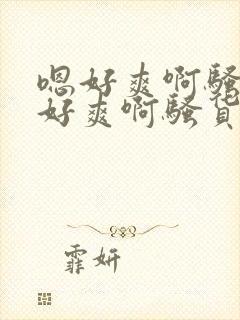 嗯好爽啊骚
好爽啊骚货
霏妍